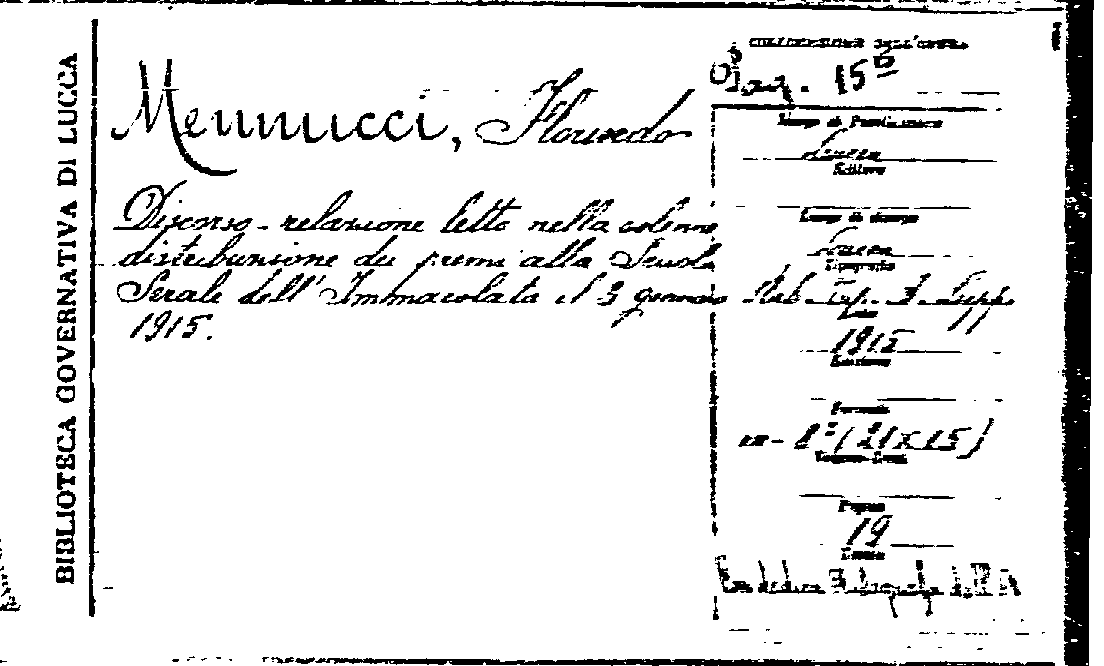 BIBLIOTECA GOVERNATIVA DI LUCCA
Mennucci,
Discorso - relazione letto nella solenne
distribuzione dei premi alla Scuola
Serale dell'Immacolata il 3 gennaio
1915.
COLLOCAZIONE DELL'OPERA
15
Luogo di Pubblicazione
Lucca
Editore
Luogo di stampa
Lucca
Tipografia
Stab. Tip.
Data
1915
Edizione
Formato
in-8° (21x15)
Pagine
19